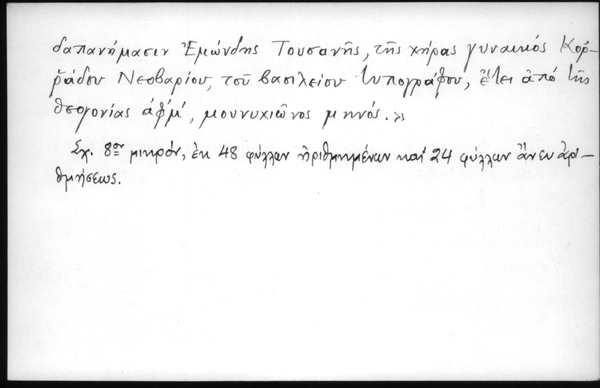 δαπανήμασιν Ἐμώνδης Τουσανῆς, τῆς χήρας γυναικός Κοῤ-
ῥάδου Νεοβαρίου, τοῦ βασιλείου τυπογράφου, ἔτει ἀπό τῆς
θεογονίας ἀφμ΄, μουνυχιῶνος μηνός.
Σχ. 8ον μικρόν, ἐκ 48 φύλλων ἠριθμημένων καί 24 φύλλων ἄνευ ἀρι-
θμήσεως.